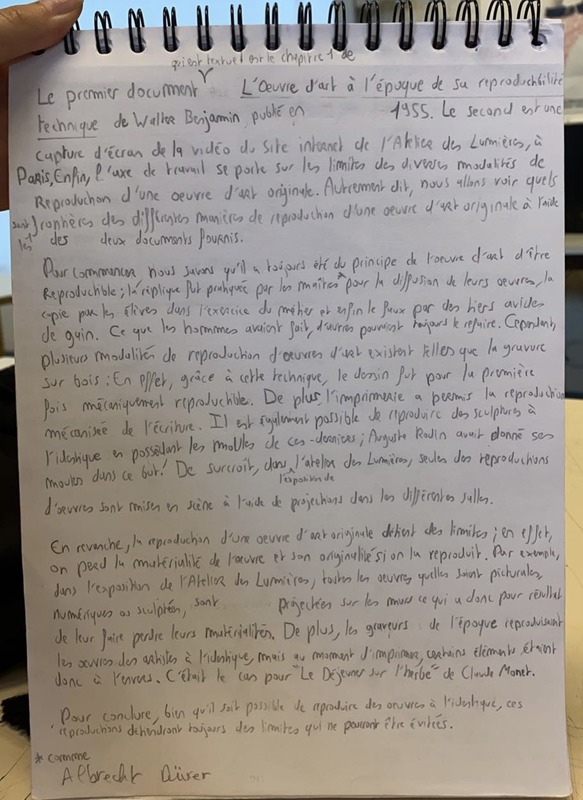 qui est textuel est le chapitre 1 de
Le premier document L'Oeuvre d'art à l'époque de sa reproductibilité
technique de Walter Benjamin, publié en 1955. Le second est une
capture d'écran de la vidéo du Site internet de l'Atelier des Lumières, à
Paris, Enfin, l'axe de travail se porte sur les limites des diverses modalités de
Reproduction d'une oeuvre d'art originale. Autrement dit, nous allons voir quels
sont les trophères des différentes manières de reproduction d'une oeuvre d'art originale à l'aide
des deux documents fournis.
Pour commencer nous savons qu'il a toujours été du principe de l'oeuvre d'art d'être
Reproductible ; la réplique fut pratiquée par les maîtres* pour la diffusion de leurs oeuvres, la
copie par les élèves dans l'exercice du métier et enfin le faux par des tiers avides
de gain. Ce que les hommes avaient fait, d'autres pouvaient toujours le refaire. Cependant,
plusieurs modalités de reproduction d'oeuvres d'art existent telles que la gravure
sur bois : En effet, grâce à cette technique, le dessin fut pour la première
fois mécaniquement reproductible. De plus l'imprimerie a permis la reproduction
mécanisée de l'écriture. Il est également possible de reproduire des sculptures à
l'identique en possédant les moules de ces-dernières ; Auguste Rodin avait donné ses
moules dans ce but. De surcroit, dans l'exposition de l'atelier des Lumières, seules des reproductions
d'oeuvres sont mises en scène à l'aide de projections dans les différentes salles.
En revanche, la reproduction d'une oeuvre d'art originale détient des limites ; en effet,
on perd la matérialité de l'oeuvre et son originalité si on la reproduit. Par exemple,
dans l'exposition de l'Atelier des Lumières, toutes les oeuvres quelles soient picturales,
numériques ou sculptées, sont projectées sur les murs ce qui a donc pour résultat
de leur faire perdre leurs matérialités. De plus, les graveurs de l'époque reproduisaient
les oeuvres des artistes à l'identique, mais au moment d'imprimer, certains éléments étaient
donc à l'envers. C'était le cas pour "Le Déjeuner sur l'herbe" de Claude Monet.
Pour conclure, bien qu'il soit possible de reproduire des oeuvres à l'identique, ces
reproductions détiendront toujours des limites qui ne pourront être évitées.
* comme
Albrecht Dürer